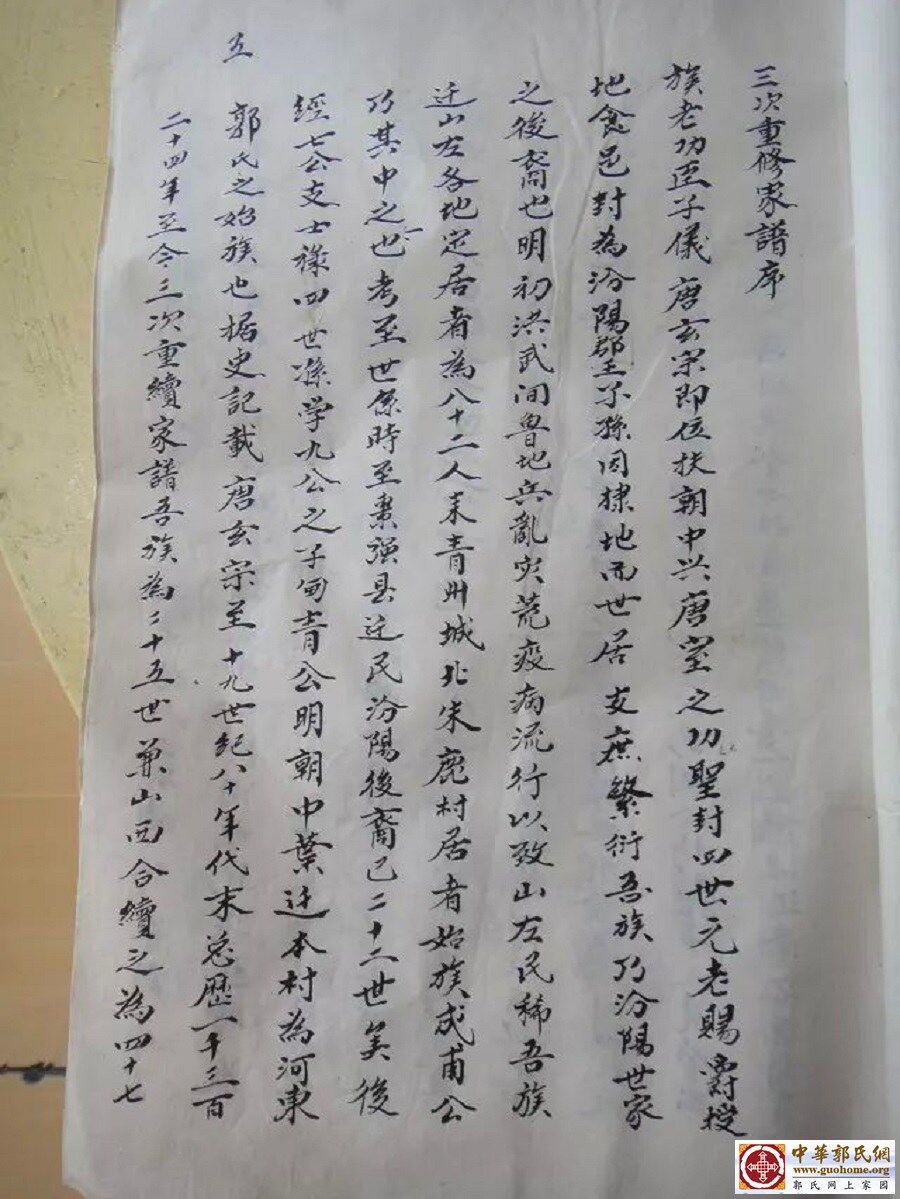 三次重修家譜序
族老功臣子儀唐玄宗即位扶朝中兴唐室之功聖封四世元老賜爵授
地食邑封為汾陽郡王子孫因棣地而世居支庶繁衍吾族乃汾陽世家
之後裔也明初洪武间魯地兵亂災荒疫病流行以致山左民稀吾族
迁山左各地定居者為八十二人来青州城北朱鹿村居者始族成甫公
乃其中之一也考至世係時至棗强县迁民汾陽後裔已二十二世矣後
經七公支士祿四世孫学九公之子甸青公明朝中葉迁本村為河東
郭氏之始族也据史記載唐玄宗至十九世紀八十年代末总歷一千三百
二十四年至今三次重續家譜吾族為二十五世兼山西合續之為四十七
五
中華郭氏網
www.guohome.org
郭氏网上家园